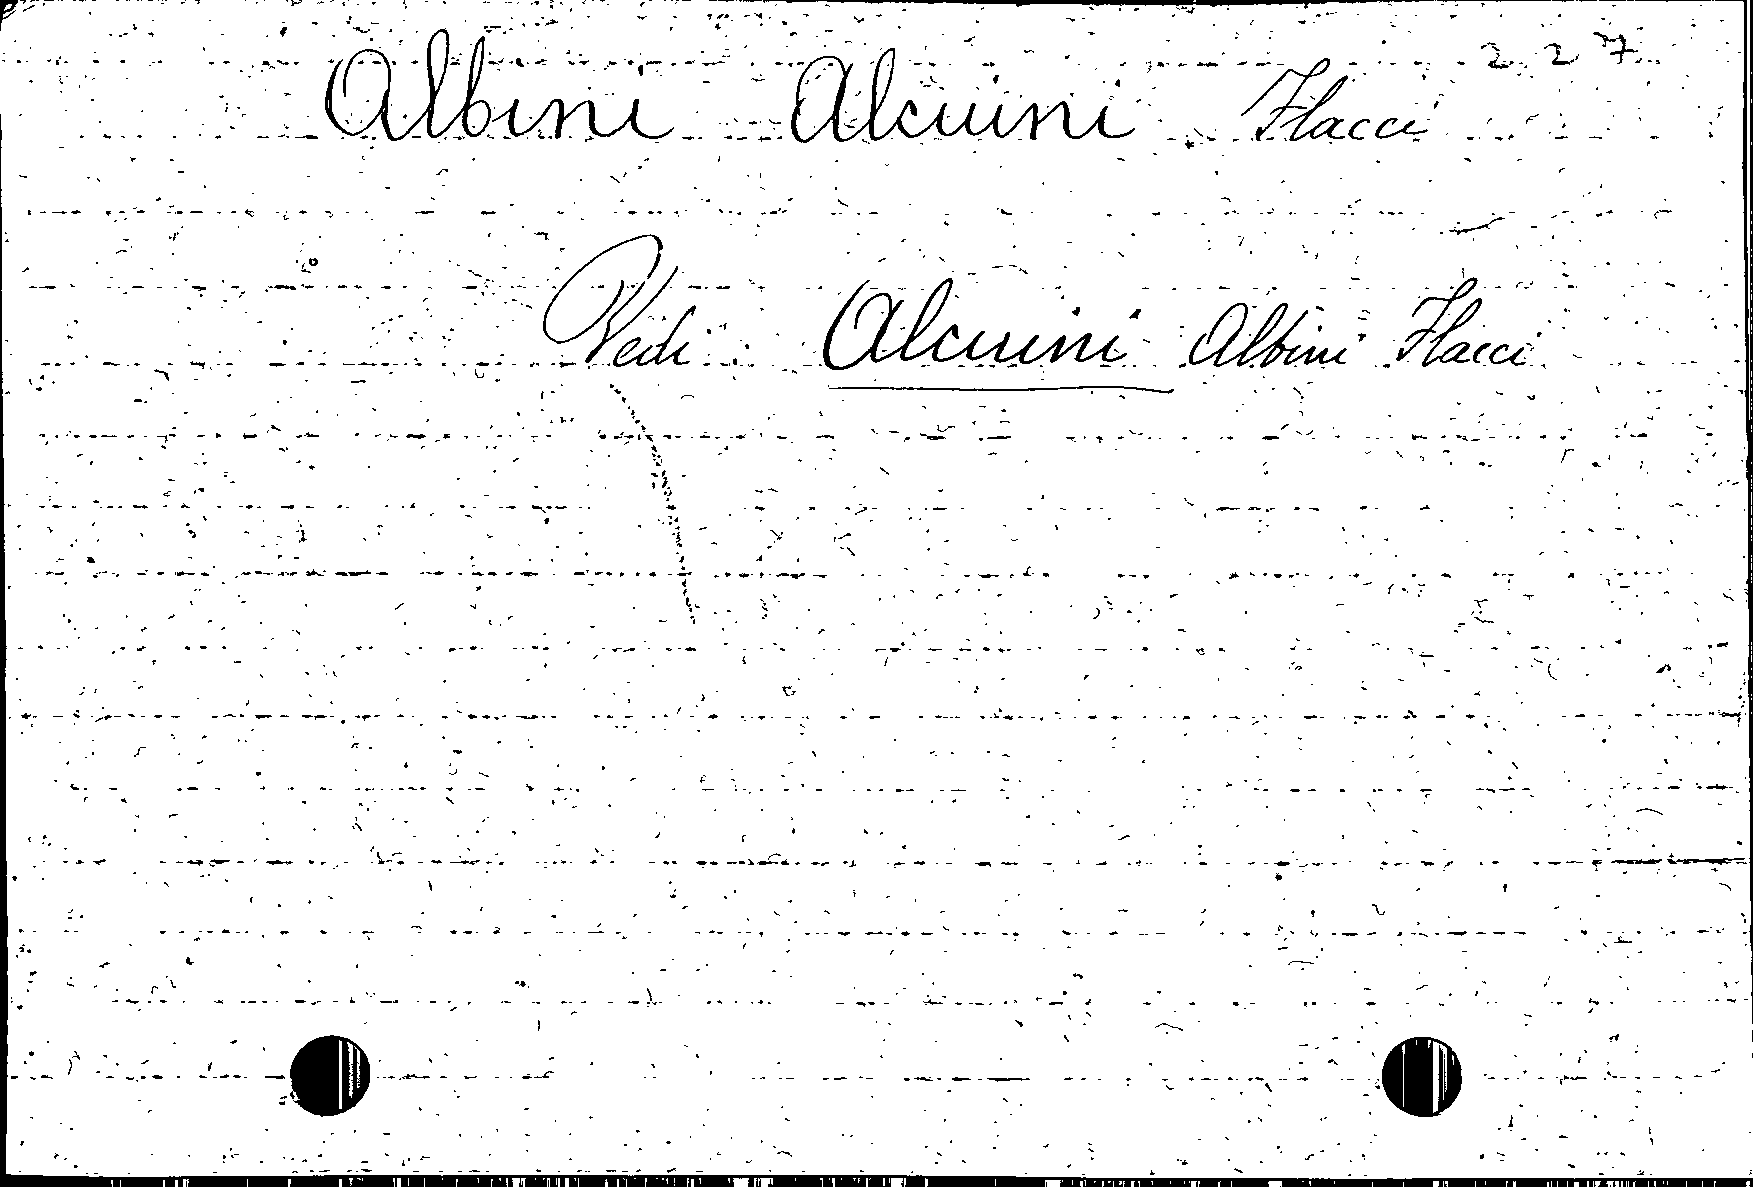 227
Albini Alcuini Flacci
Vedi Alcuini Albini Flacci